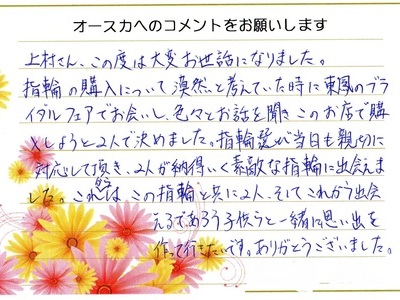 オースカへのコメントをお願いします
上村さん、この度は大変お世話になりました。
指輪の購入について漠然と考えていた時に東風のブラ
イダルフェアでお会いし、色々とお話を聞きこのお店で購
入しようと2人で決めました。指輪選び当日も親切に
対応して頂き、2人が納得いく素敵な指輪に出会えま
した。これからは、この指輪と共に2人、そしてこれから出会
えるであろう子供らと一緒に思い出を
作って行きたいです。ありがとうございました。